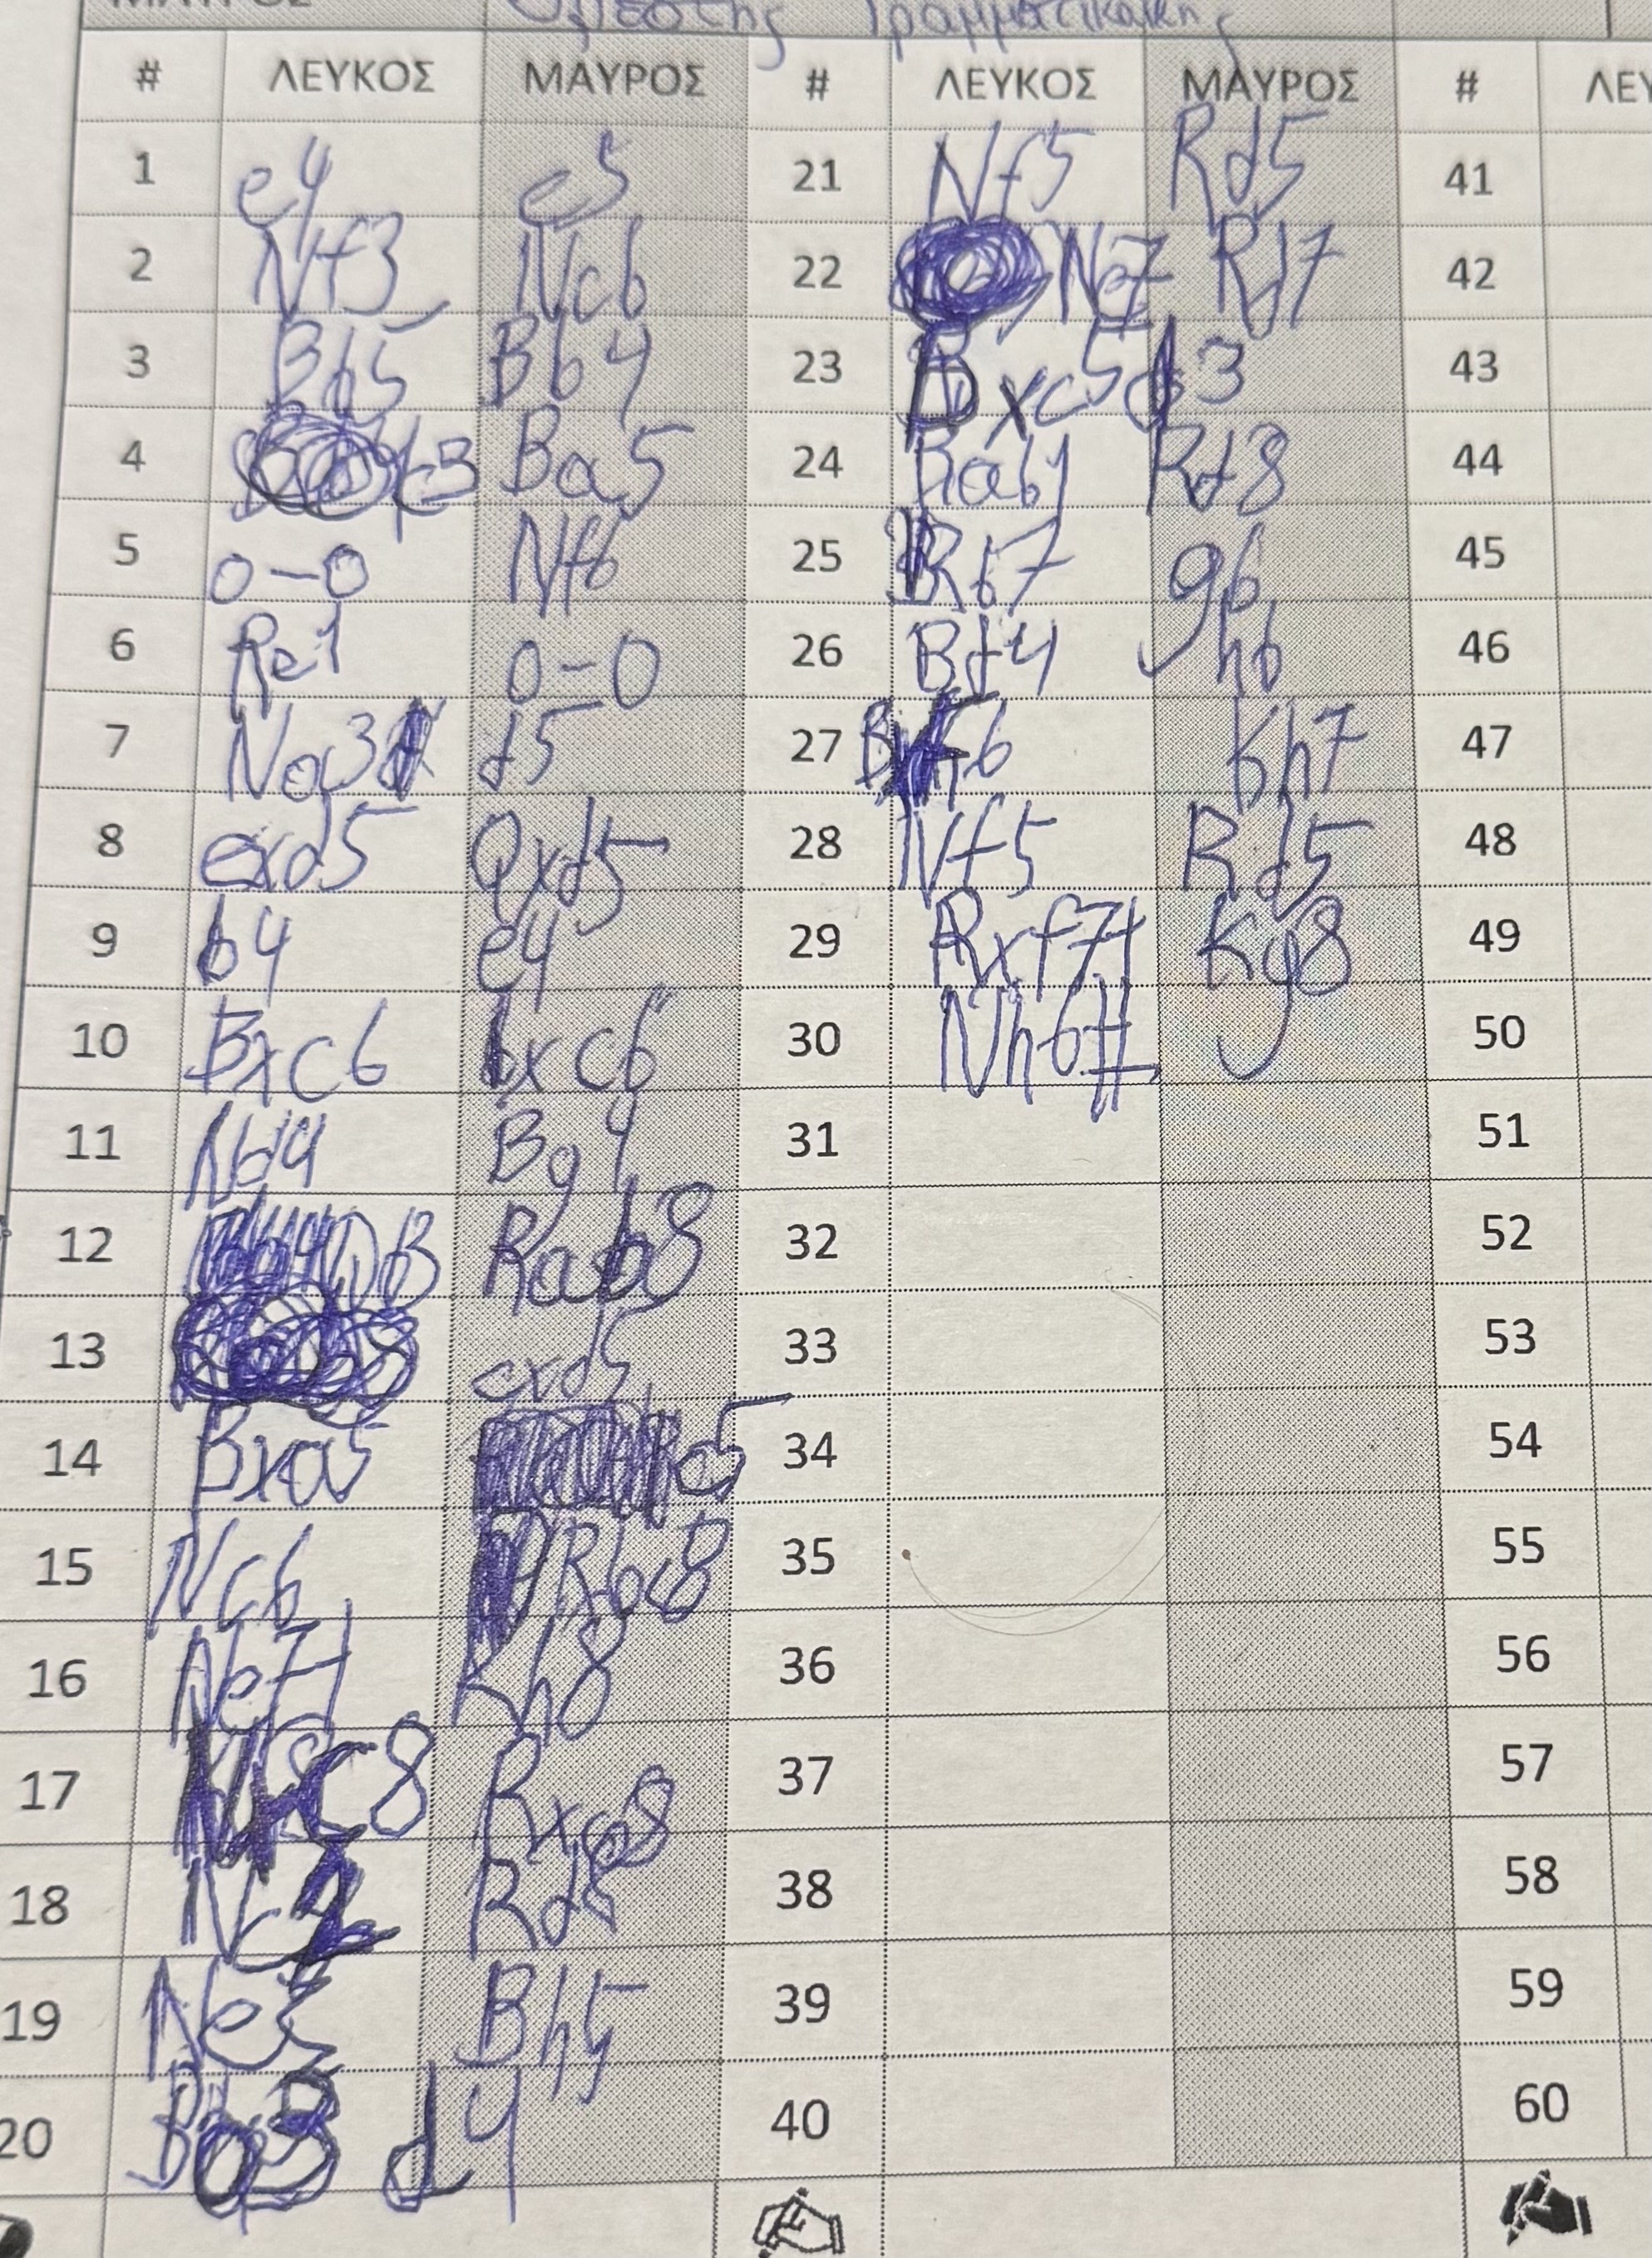 ΜΑΥΡΟΣ
# ΛΕΥΚΟΣ ΜΑΥΡΟΣ # ΛΕΥΚΟΣ ΜΑΥΡΟΣ # ΛΕΥ
1 e4 e5 21 Nf5 Rd5 41
2 Nf3 Nc6 22 Ne7 Rd7 42
3 Bb5 Bb4 23 Bxc5 d3 43
4 c3 Ba5 24 Rab1 Rd8 44
5 0-0 Nf6 25 Rb7 g6 45
6 Re1 0-0 26 Bd4 h6 46
7 Na3 d5 27 Bxf6 Kh7 47
8 exd5 Qxd5 28 Nf5 Rd5 48
9 b4 e4 29 Rxf7+ Kg8 49
10 Bxc6 bxc6 30 Nh6# 50
11 Nd4 Bg4 31 51
12 Rab8 32 52
13 cxd5 33 53
14 Bxa5 34 54
15 Nc6 Rbc8 35 55
16 Ne7+ Kh8 36 56
17 Nxc8 Rxc8 37 57
18 Nc2 Rd8 38 58
19 Ne3 Bh5 39 59
20 d4 40 60